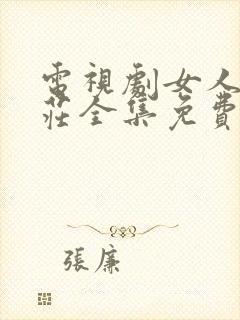 電視劇女人
莊全集免費
張廉